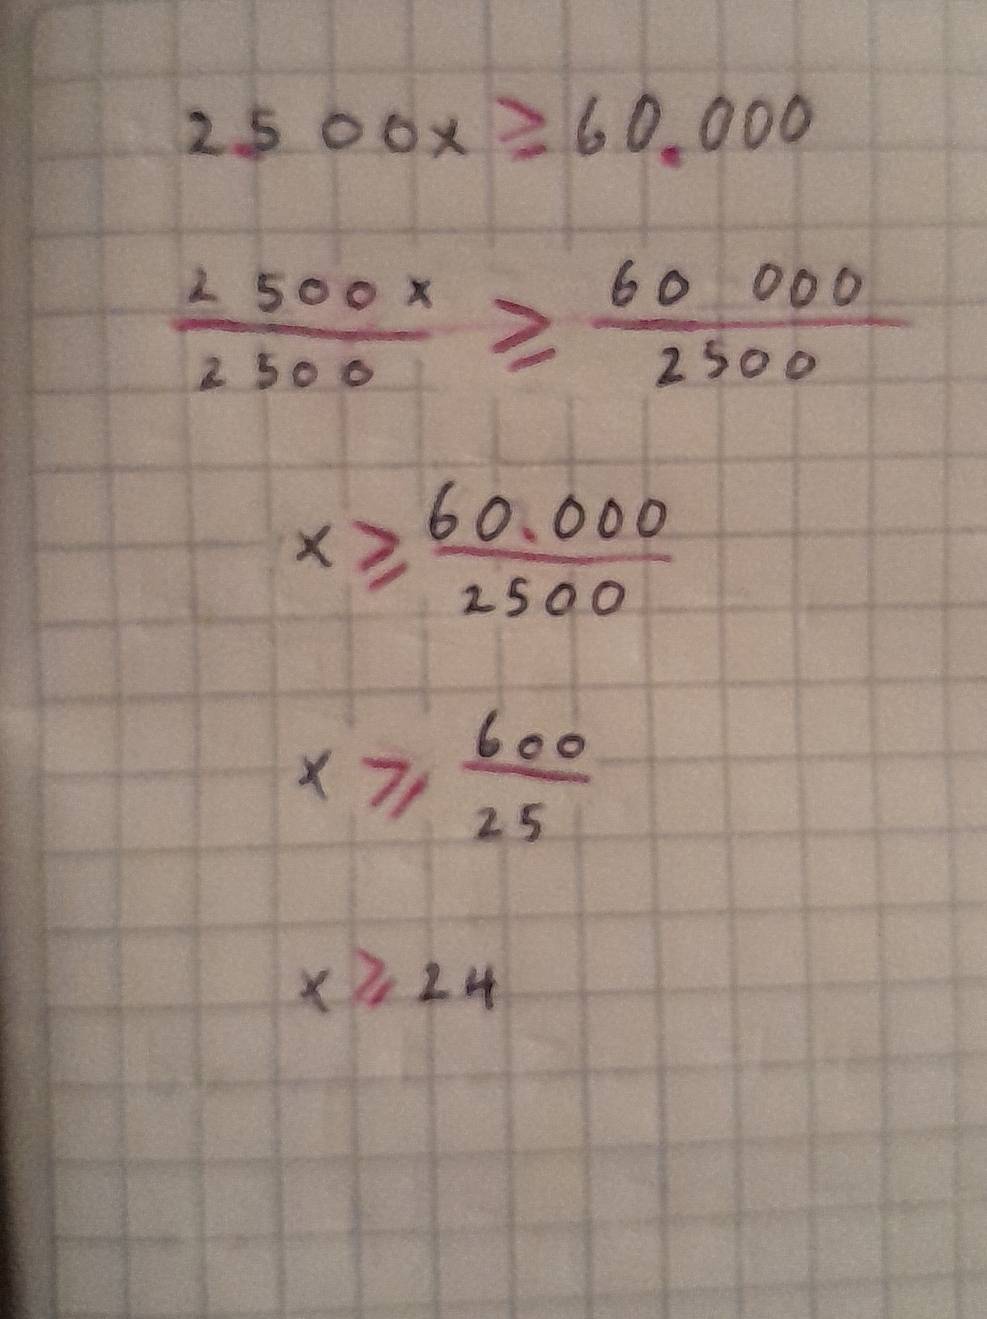 2.500x ≥ 60.000
2 500x / 2500 ≥ 60 000 / 2500
x ≥ 60.000 / 2500
x ≥ 600 / 25
x ≥ 24